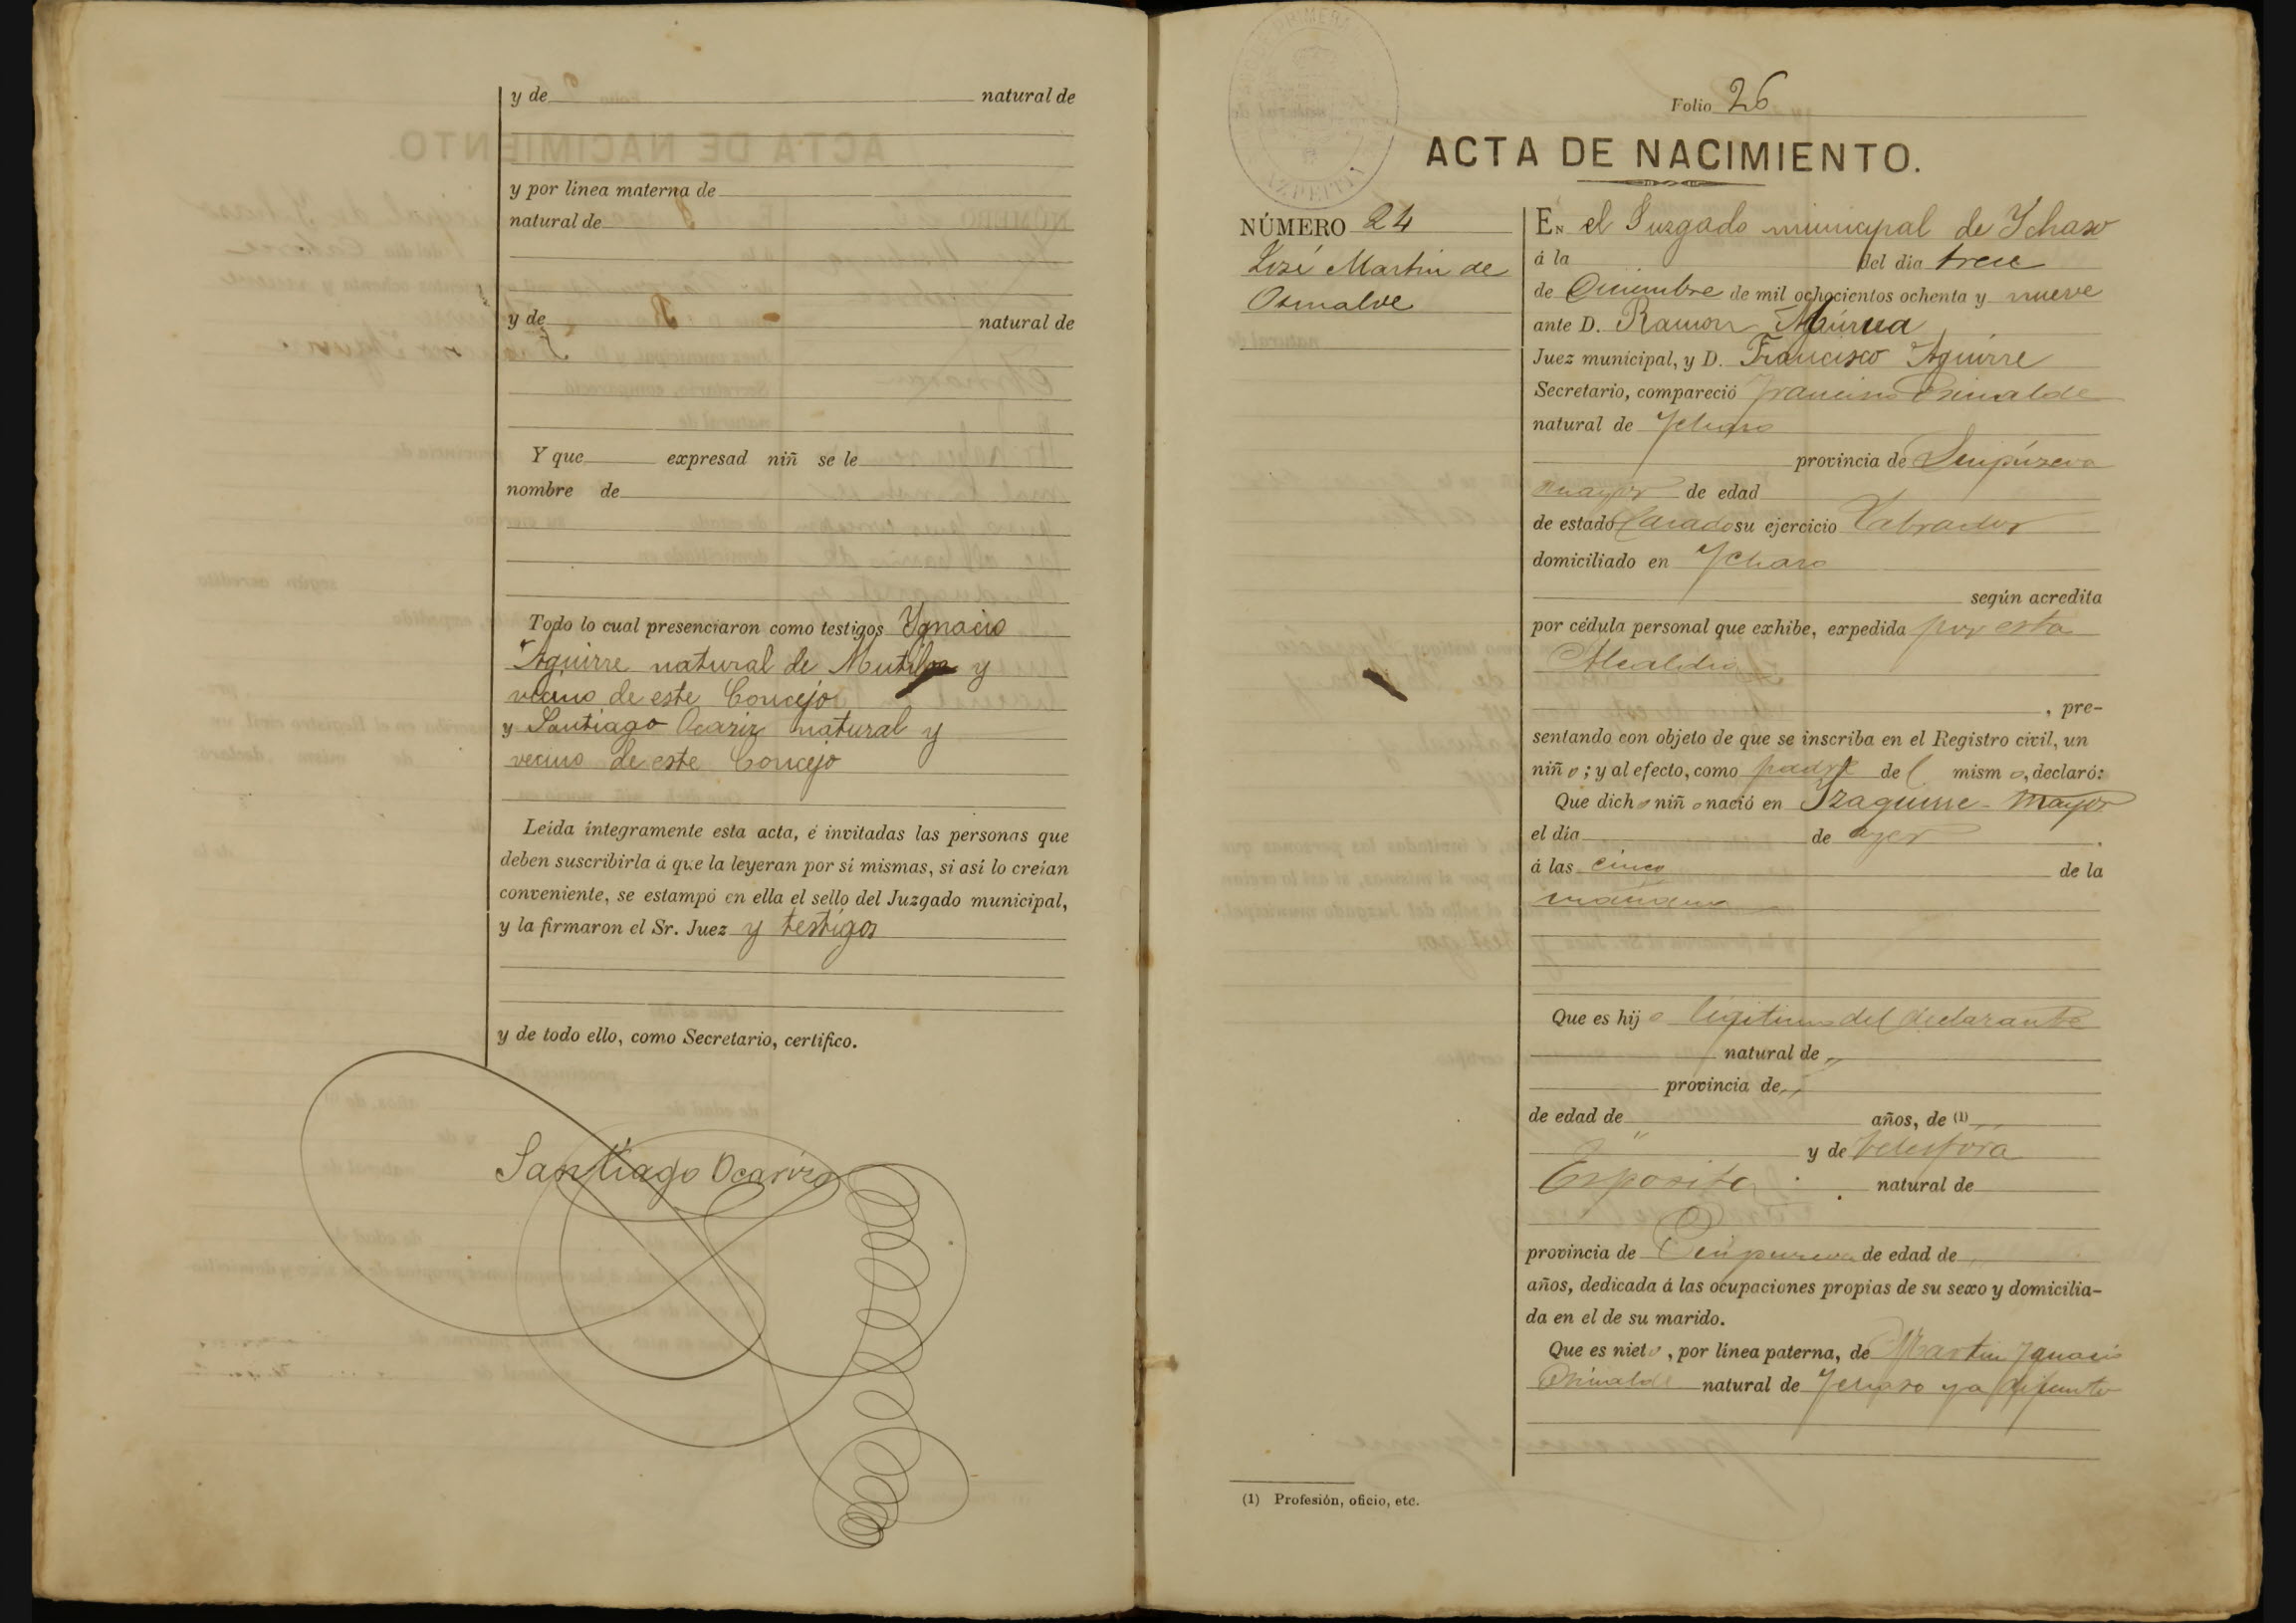 y de natural de
y por línea materna de
natural de
y de natural de
Y que expresad niñ se le
nombre de
Todo lo cual presenciaron como testigos Ygnacio
Aguirre natural de Mutiloa y
vecino de este Concejo
y Santiago Ocariz natural y
vecino de este Concejo
Leída íntegramente esta acta, é invitadas las personas que
deben suscribirla á que la leyeran por sí mismas, si así lo creían
conveniente, se estampó en ella el sello del Juzgado municipal,
y la firmaron el Sr. Juez y testigos
y de todo ello, como Secretario, certifico.
Santiago Ocariz
Folio 26
ACTA DE NACIMIENTO.
NÚMERO 24
José Martin de
Osinalde
En el Juzgado municipal de Ychaso
á la del dia trece
de Diciembre de mil ochocientos ochenta y nueve
ante D. Ramon
Juez municipal, y D. Francisco Aguirre
Secretario, compareció Francisco Osinalde
natural de Ychaso
provincia de Guipúzcoa
mayor de edad
de estado Casado su ejercicio Labrador
domiciliado en Ychaso
según acredita
por cédula personal que exhibe, expedida por esta
Alcaldia
, pre-
sentando con objeto de que se inscriba en el Registro civil, un
niño; y al efecto, como padre del mismo, declaró:
Que dicho niño nació en Yzaguirre-mayor
el día de ayer
á las cinco de la
mañana
Que es hijo legitimo del declarante
natural de „
provincia de „
de edad de „ años, de (1) „
y de Telesfora
Exposita natural de
provincia de Guipuzcoa de edad de „
años, dedicada á las ocupaciones propias de su sexo y domicilia-
da en el de su marido.
Que es nieto, por línea paterna, de Martin Ygnacio
Osinalde natural de Ychaso ya difunto
(1) Profesión, oficio, etc.